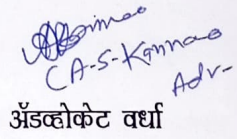 (A-S-Kannao
Adv-
ॲडव्होकेट वर्धा